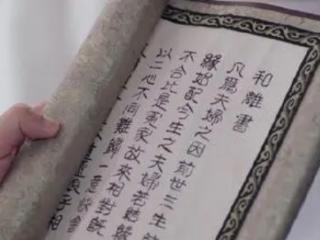 和離書
凡爲夫婦之因前世三生
緣始配今生之夫婦若結緣
不合比是寃家故來相對既
以二心不同難歸一意